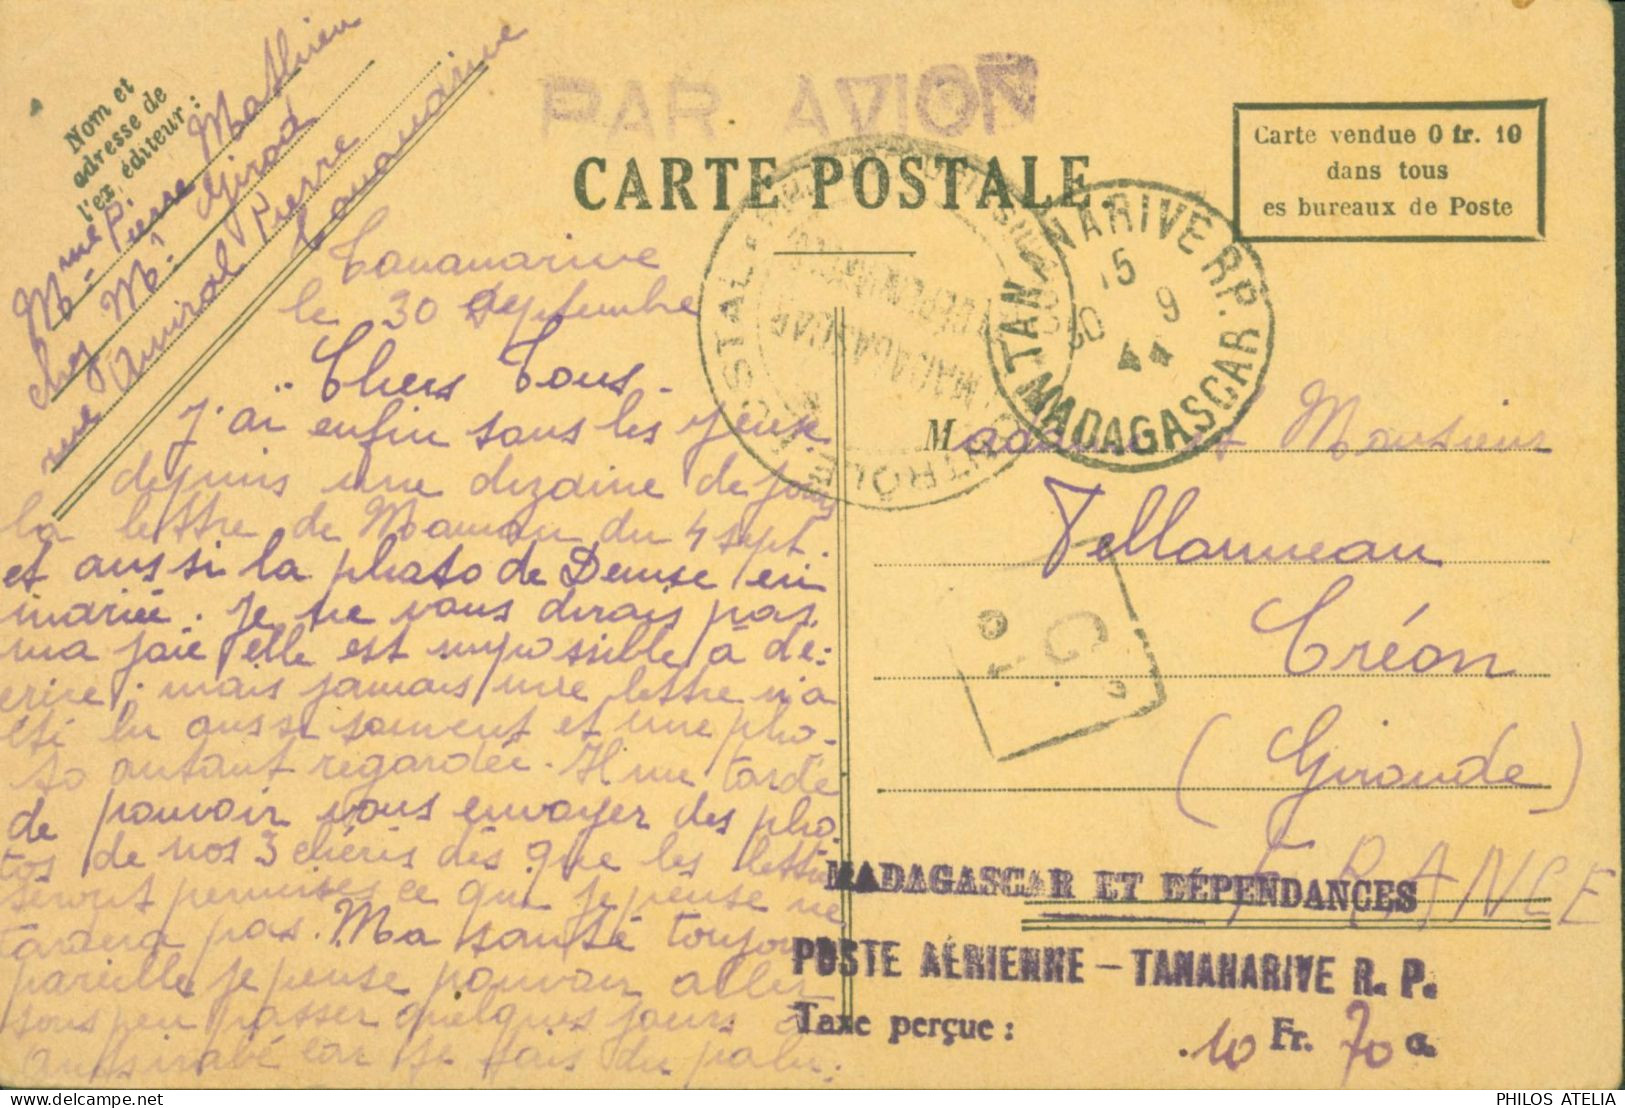 PAR AVION
CARTE POSTALE.
Nom et
adresse de
l'expéditeur :
Mme Pierre Mathieu
chez Mr Girod
rue Amiral Pierre
Tananarive
Carte vendue 0 fr. 10
dans tous
es bureaux de Poste
TANANARIVE R.P.
15
30 9
44
MADAGASCAR
CONTRÔLE POSTAL
MADAGASCAR
Tananarive
le 30 Septembre
Chers Tous.
J'ai enfin sous les yeux
depuis une dizaine de jours
la lettre de Maman du 4 sept.
et aussi la photo de Denise en
mariée. Je ne vous dirais pas
ma joie elle est impossible à dé-
crire; mais jamais une lettre n'a
été lu aussi souvent et une pho-
to autant regardée. Il me tarde
de pouvoir vous envoyer des pho-
tos de nos 3 chéris dès que les lettres
seront permises ce que je pense ne
tardera pas. Ma santé toujours
pareille je pense pouvoir aller
sous peu passer quelques jours à
Antsirabé car je fais du palu:
Madame et Monsieur
Tellanneau
Créon
(Gironde)
FRANCE
C
MADAGASCAR ET DÉPENDANCES
POSTE AÉRIENNE – TANANARIVE R. P.
Taxe perçue : 10 Fr. 70 c.
PHILOS ATELIA